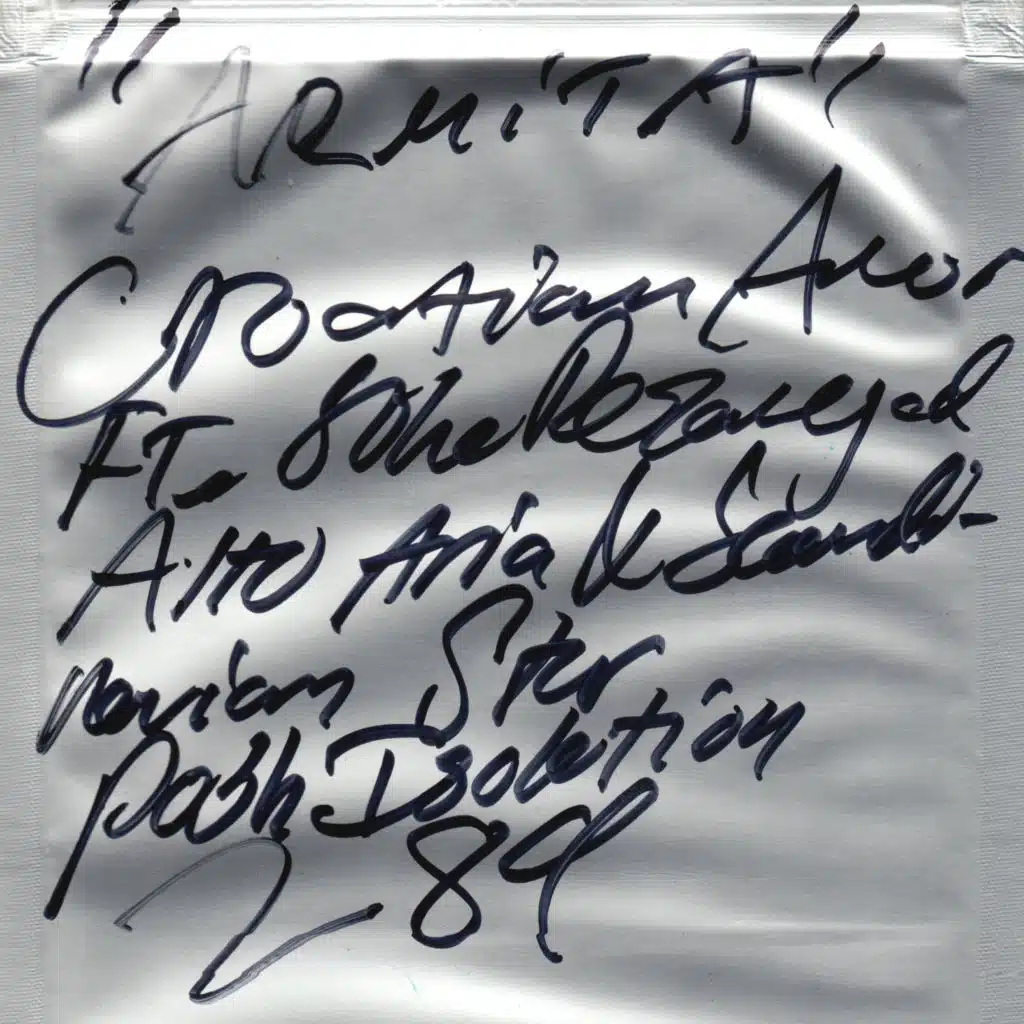 "ARMiTA"
Croatian Amor
FT. Soho Rezanejad
Alto Aria & Scandi-
navian Star
Posh Isolation
289